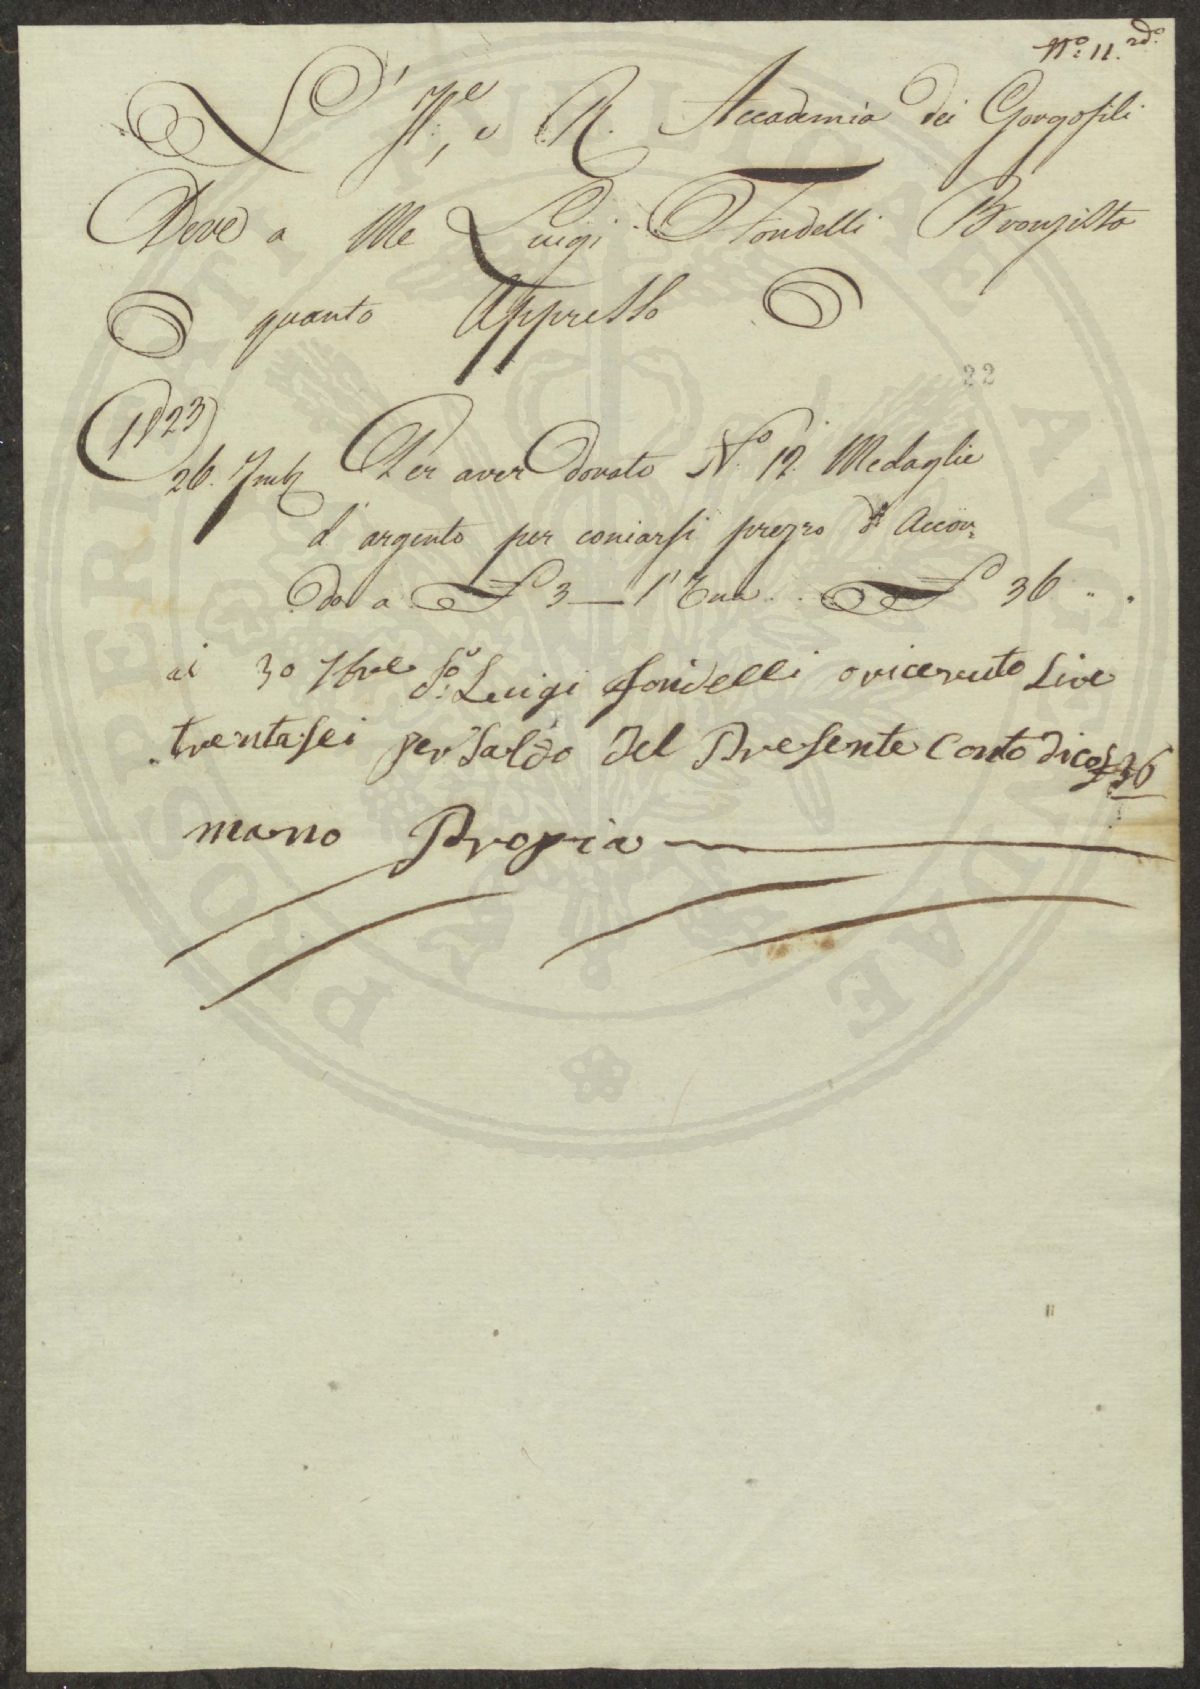 N.º 11. 2do.
L' I.e, e R. Accademia dei Gorgofili
Deve a Me Luigi Fondelli Bronzista
quanto Appresso
22
1823
26. 7mb Per aver dorato N.º 12. Medaglie
d'argento per coniarsi prezzo d'Accor=
do a £ 3 — l'Una .. £ 36 .. .
ai 30 7bre Io Luigi Fondelli o riceruto Lire
trentasei per Saldo del Presente Conto dico £ 36
mano Propria
PROSPERITATI PUBLICAE AUGENDAE